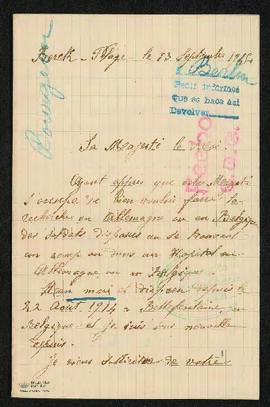 Berck-Plage - le 13 Septembre 1915
Berlin
Pedir informes
que se hace así
Devolver
Sa Majesté le Roi.
Ayant appris que votre Majesté
s'occupe de bien vouloir faire la
recherche en Allemagne ou en Belgique
des soldats disparus ou se trouvant
en camp ou dans un Hopital en
Allemagne ou en Belgique.
Mon mari et disparu depuis le
22 Août 1914 à
Belgique et je suis sans nouvelle
depuis.
Je viens solliciter de votre